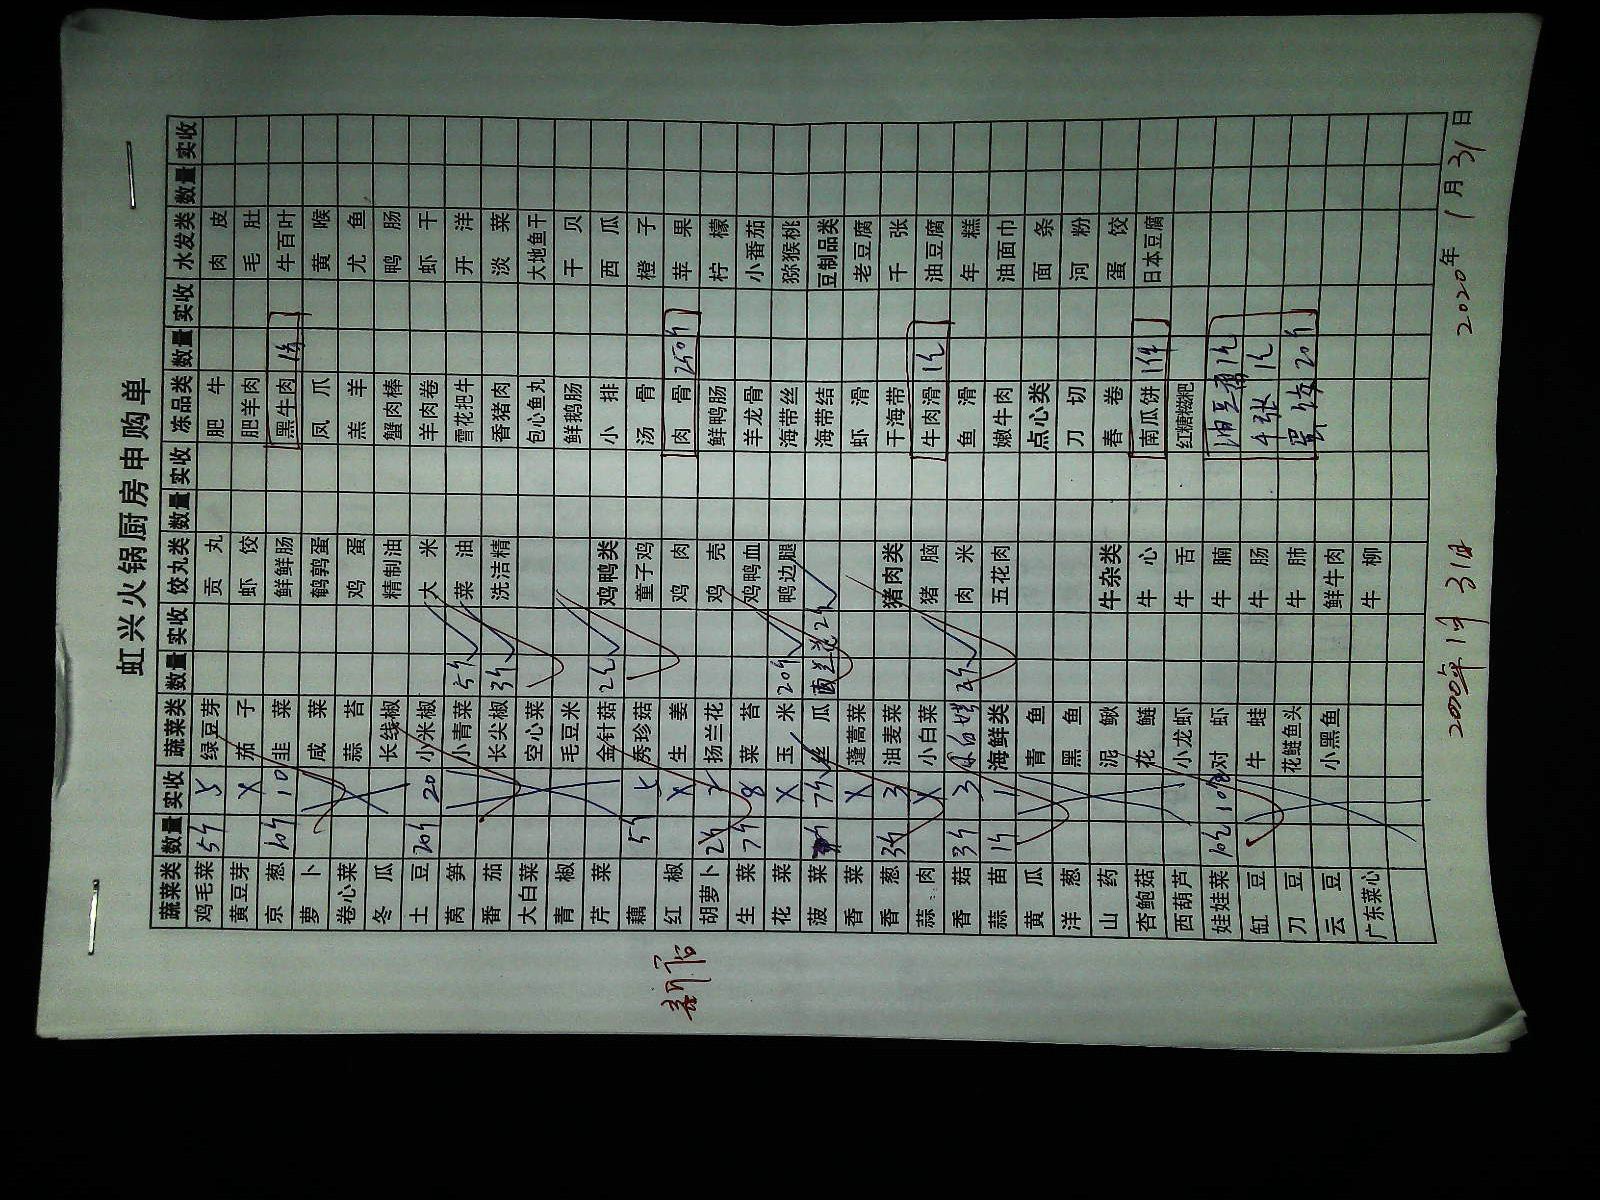 虹兴火锅厨房申购单
蔬菜类 数量 实收 蔬菜类 数量 实收 饺丸类 数量 实收 冻品类 数量 实收 水发类 数量 实收
鸡毛菜 5斤 5 绿豆芽 贡丸 肥牛 肉皮
黄豆芽 X 茄子 虾饺 肥羊肉 毛肚
京葱 10斤 10 韭菜 鲜鲜肠 黑牛肉 牛百叶
萝卜 咸菜 鹌鹑蛋 凤爪 黄喉
卷心菜 蒜苔 鸡蛋 羔羊 尤鱼
冬瓜 长线椒 精制油 蟹肉棒 鸭肠
土豆 20斤 20 小米椒 大米 羊肉卷 虾干
莴笋 小青菜 5斤 菜油 雪花把牛 开洋
番茄 长尖椒 3斤 洗洁精 香猪肉 淡菜
大白菜 空心菜 包心鱼丸 大地鱼干
青椒 毛豆米 鲜鹅肠 干贝
芹菜 金针菇 鸡鸭类 小排 西瓜
藕 5斤 5 秀珍菇 童子鸡 汤骨 橙子
红椒 X 生姜 鸡肉 肉骨 250斤 苹果
胡萝卜 2斤 2 扬兰花 鸡壳 鲜鸭肠 柠檬
生菜 7斤 8 菜苔 鸡鸭血 羊龙骨 小番茄
花菜 X 玉米 20斤 鸭边腿 海带丝 猕猴桃
菠菜 7斤 丝瓜 西兰花 2斤 海带结 豆制品类
香菜 X 蓬蒿菜 虾滑 老豆腐
香葱 3斤 3 油麦菜 猪肉类 干海带 千张
蒜肉 X 小白菜 猪脑 牛肉滑 1匕 油豆腐
香菇 3斤 3 肉米 鱼滑 年糕
蒜苗 1斤 1 海鲜类 五花肉 嫩牛肉 油面巾
黄瓜 青鱼 点心类 面条
洋葱 黑鱼 刀切 河粉
山药 泥鳅 牛杂类 春卷 蛋饺
杏鲍菇 花鲢 牛心 南瓜饼 1件 日本豆腐
西葫芦 小龙虾 牛舌 红糖糍粑
娃娃菜 对虾 牛腩 油豆腐 1匕
缸豆 牛蛙 牛肠 千张 1匕
刀豆 花鲢鱼头 牛肺 蛋饺 20斤
云豆 小黑鱼 鲜牛肉
广东菜心 牛柳
2020年1月31日
新店